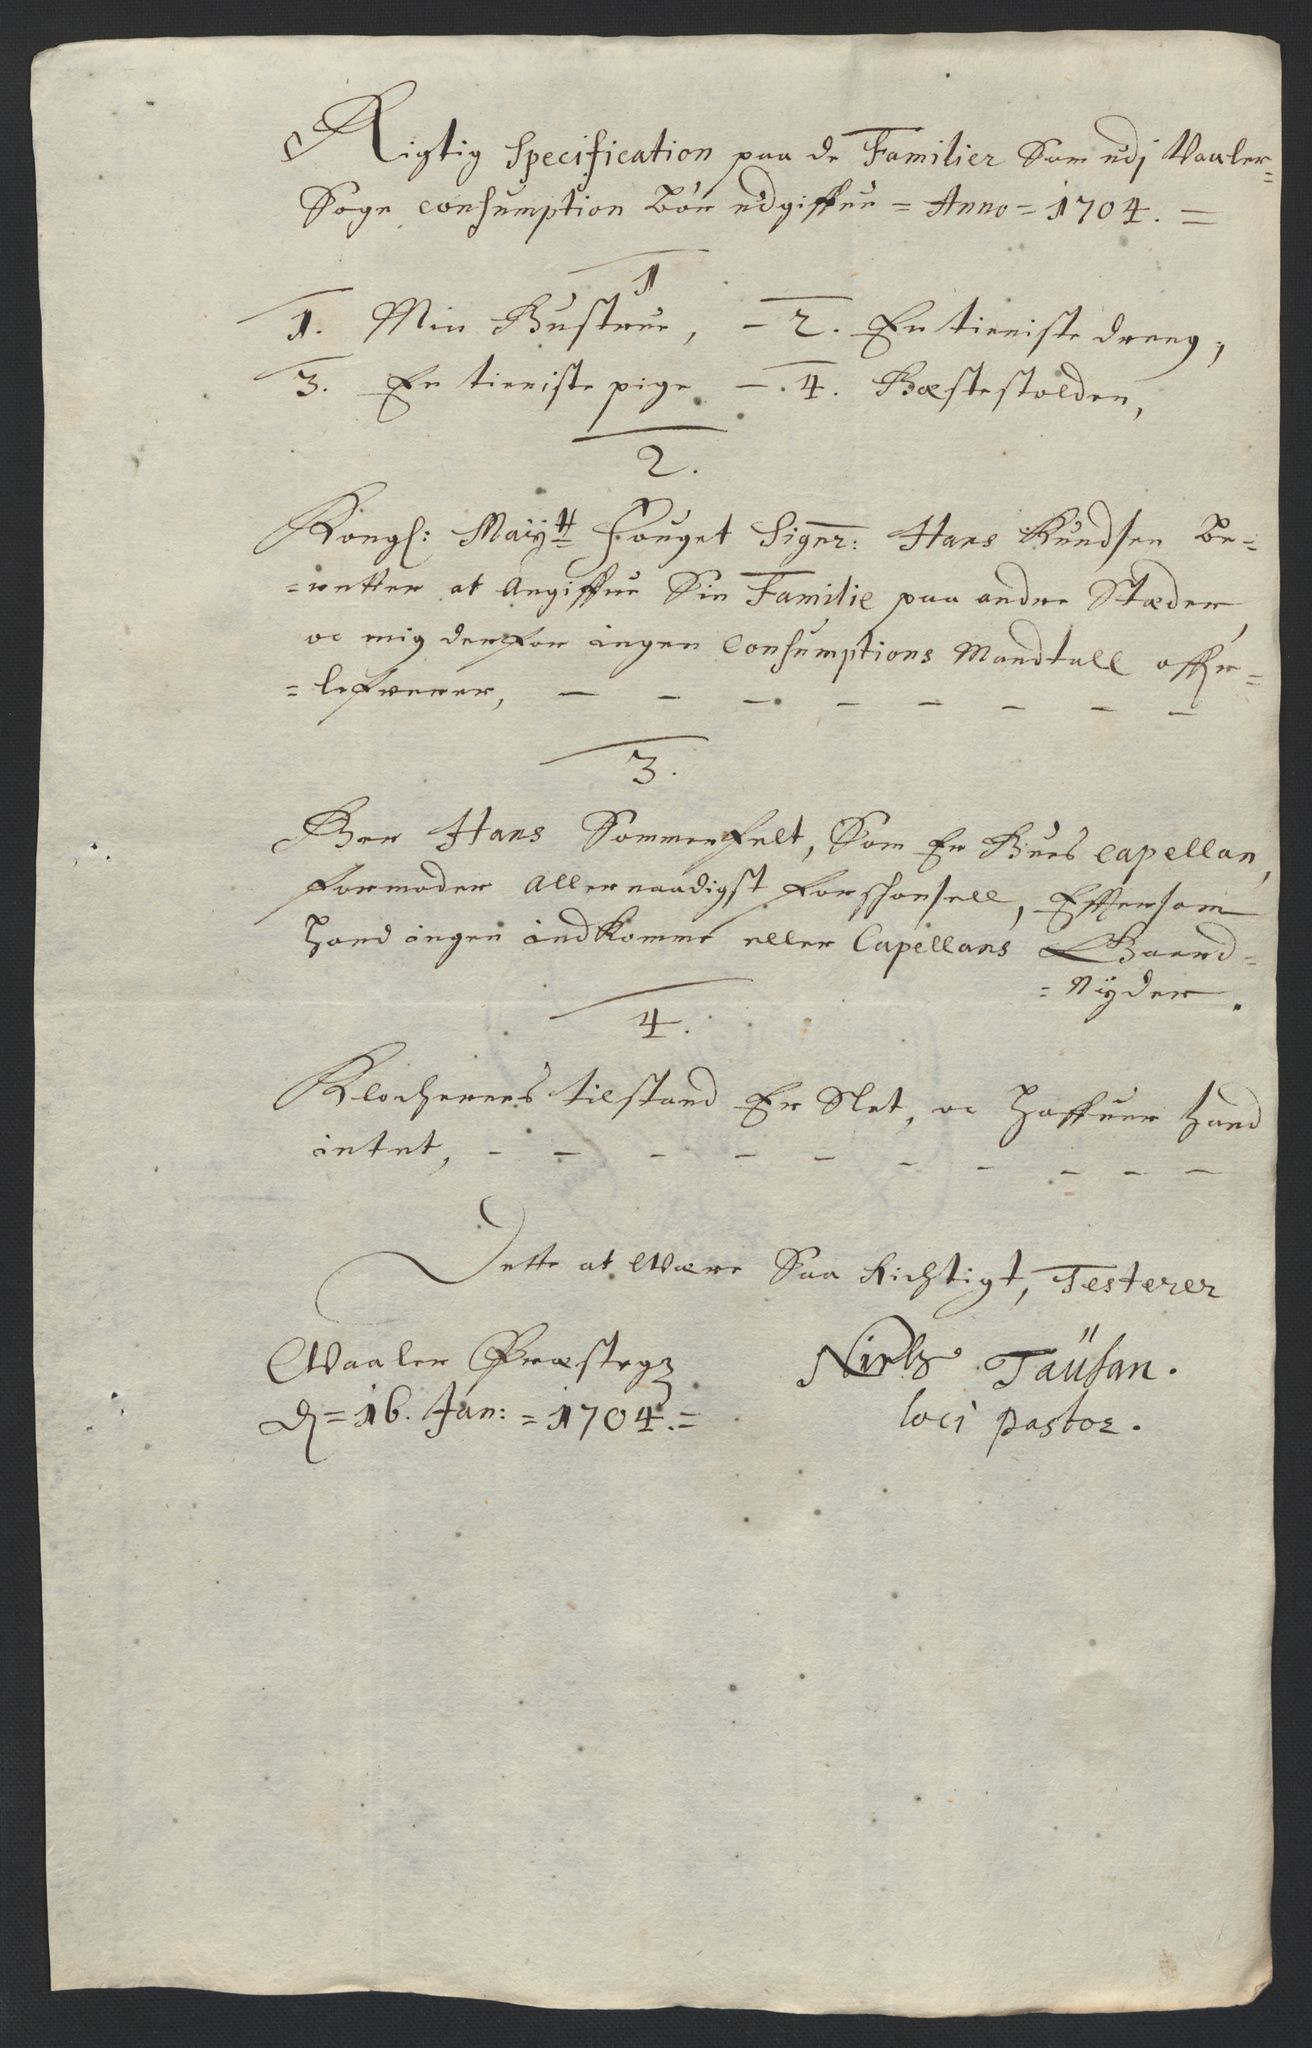 Rigtig Specification paa de Familier Som udj Vaaler=
Sogn consumption bør udgiffue = Anno = 1704. =
1
1. Min Hustrue, - 2. En tieniste dreng,
3. En tieniste pige - . 4. Hæstestolden,
2.
Kongl: Maÿtz fouget Signr: Hans Knudsen Be=
=retter at Angiffue Sin Familie paa andre Stæder
oc mig derfor ingen Consumptions Mandtall offer=
=lefverer, - - - - - - - -
3.
Her Hans Sommerfelt, Som Er Huus Capellan,
formoder Allernaadigst forschonsell, Efftersom
hand ingen indkomme eller Capellans Gaard=
=Nÿder.
4.
Klocherens tilstand Er Slet, oc haffuer hand
intet, - - - - - - - - - -
Dette at Være Saa Richtigt, Testerer
Waaler Præsteg
d = 16. Jan: = 1704. =
Niels Taüsan.
loci pastor.